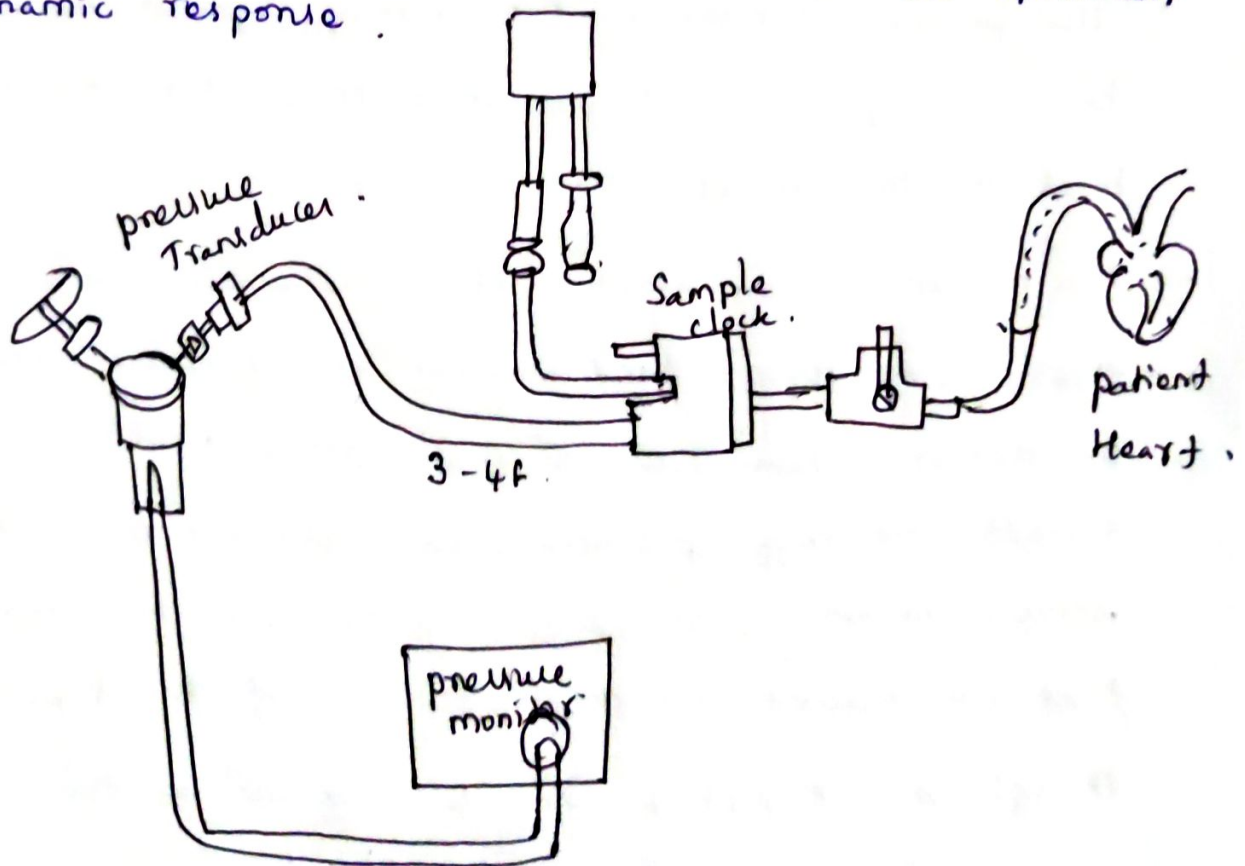 namic response.
pressure
Transducer.
Sample
clock.
patient
Heart.
3-4f.
pressure
monitor